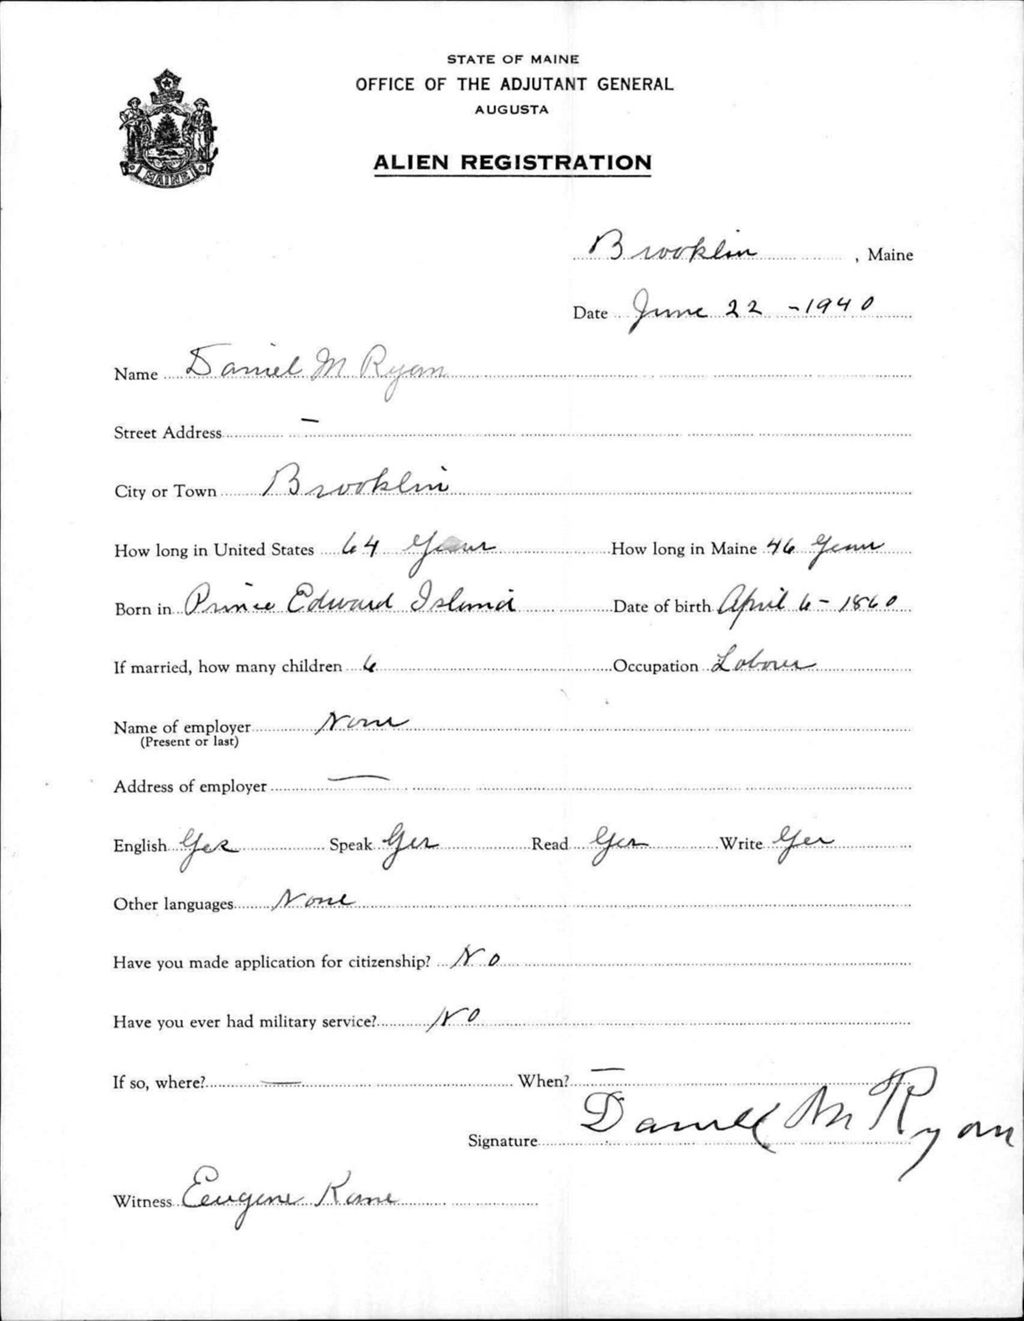 STATE OF MAINE
OFFICE OF THE ADJUTANT GENERAL
AUGUSTA
ALIEN REGISTRATION
MAINE
Brooklin, Maine
Date June 22 - 1940
Name Daniel M Ryan
Street Address —
City or Town Brooklin
How long in United States 64 Years How long in Maine 46 Years
Born in Prince Edward Island Date of birth April 6 - 1860
If married, how many children 6 Occupation Laborer
Name of employer None
(Present or last)
Address of employer —
English Yes Speak Yes Read Yes Write Yes
Other languages None
Have you made application for citizenship? No
Have you ever had military service? No
If so, where? — When? —
Signature Daniel M Ryan
Witness Eugene Kane